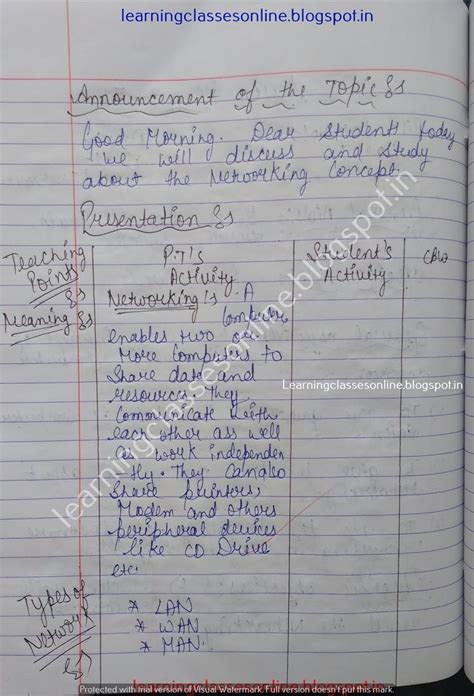 learningclassesonline.blogspot.in
Announcement of the Topic :-
Good Morning. Dear Students today
we will discuss and study
about the Networking Concept.
Presentation :-
Teaching Points
P.T's Activity
Student's Activity
CBW
Meaning :-
Networking :- A
Computer
enables two or
More Computers to
Share data and
resources. they
Communicate with
each other ass well
as work independen
-tly. They Can also
Share printers,
Modem and others
peripheral devices
like CD Drive
etc.
Types of Network :-
* LAN
* WAN
* MAN.
Learningclassesonline.blogspot.in
learningclassesonline.blogspot.in
Protected with trial version of Visual Watermark. Full version doesn't put this mark.
learningclassesonline.blogspot.in